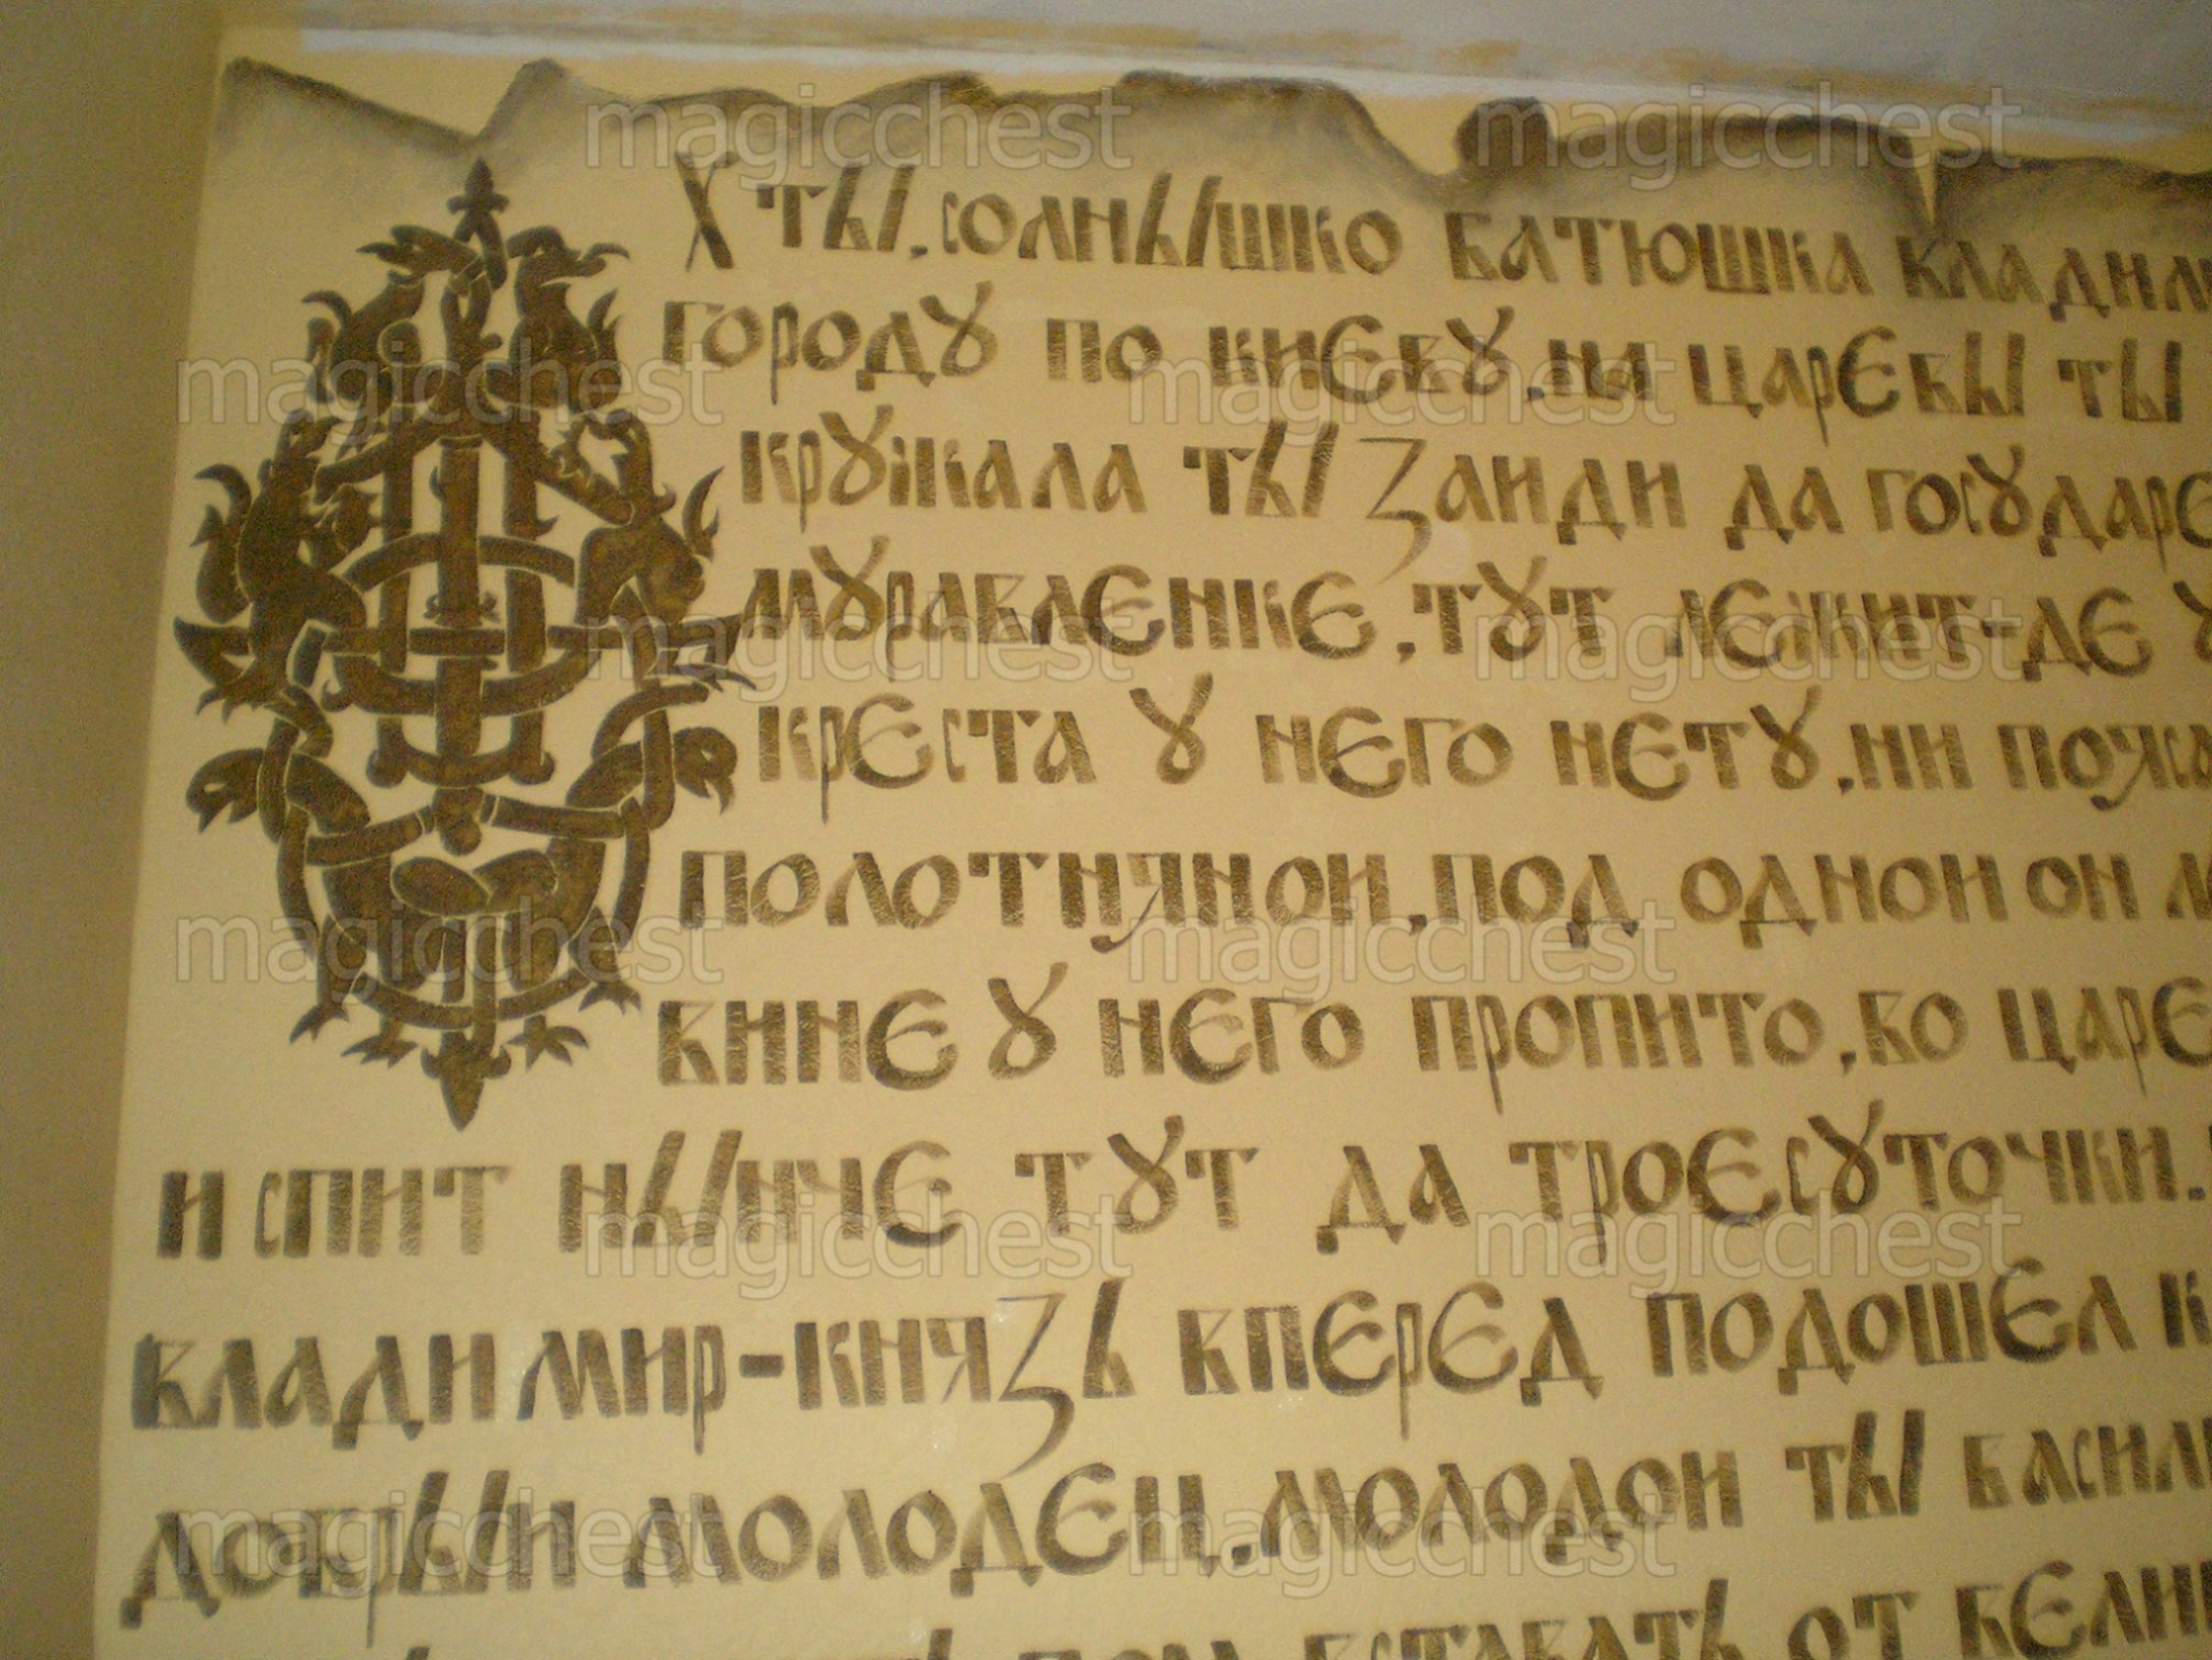 Ох ты, солнышко батюшка
городꙋ по киевꙋ, на царевы ты
крꙋжала ты заиди да
мꙋравленке, тꙋт лежит-де
креста ꙋ него нетꙋ, ни
полотняной, под одной он
вине ꙋ него пропито, во
и спит нынче тꙋт да троесꙋточки.
владимир-князь вперед подошел
добрыи молодец, молодои ты
вставать от
magicchest magicchest
magicchest magicchest
magicchest magicchest
magicchest magicchest
magicchest magicchest
magicchest magicchest